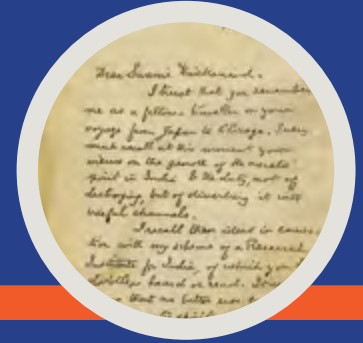 Dear Swami Vivekanand,
I trust that you remember
me as a fellow traveller on your
voyage from Japan to Chicago. I very
much recall at this moment your
views on the growth of the ascetic
spirit in India & the duty, not of
destroying, but of diverting it into
useful channels.
I recall these ideas in connec-
tion with my scheme of a Research
Institute for India, of which you
doubtless heard or read. It
that no better use